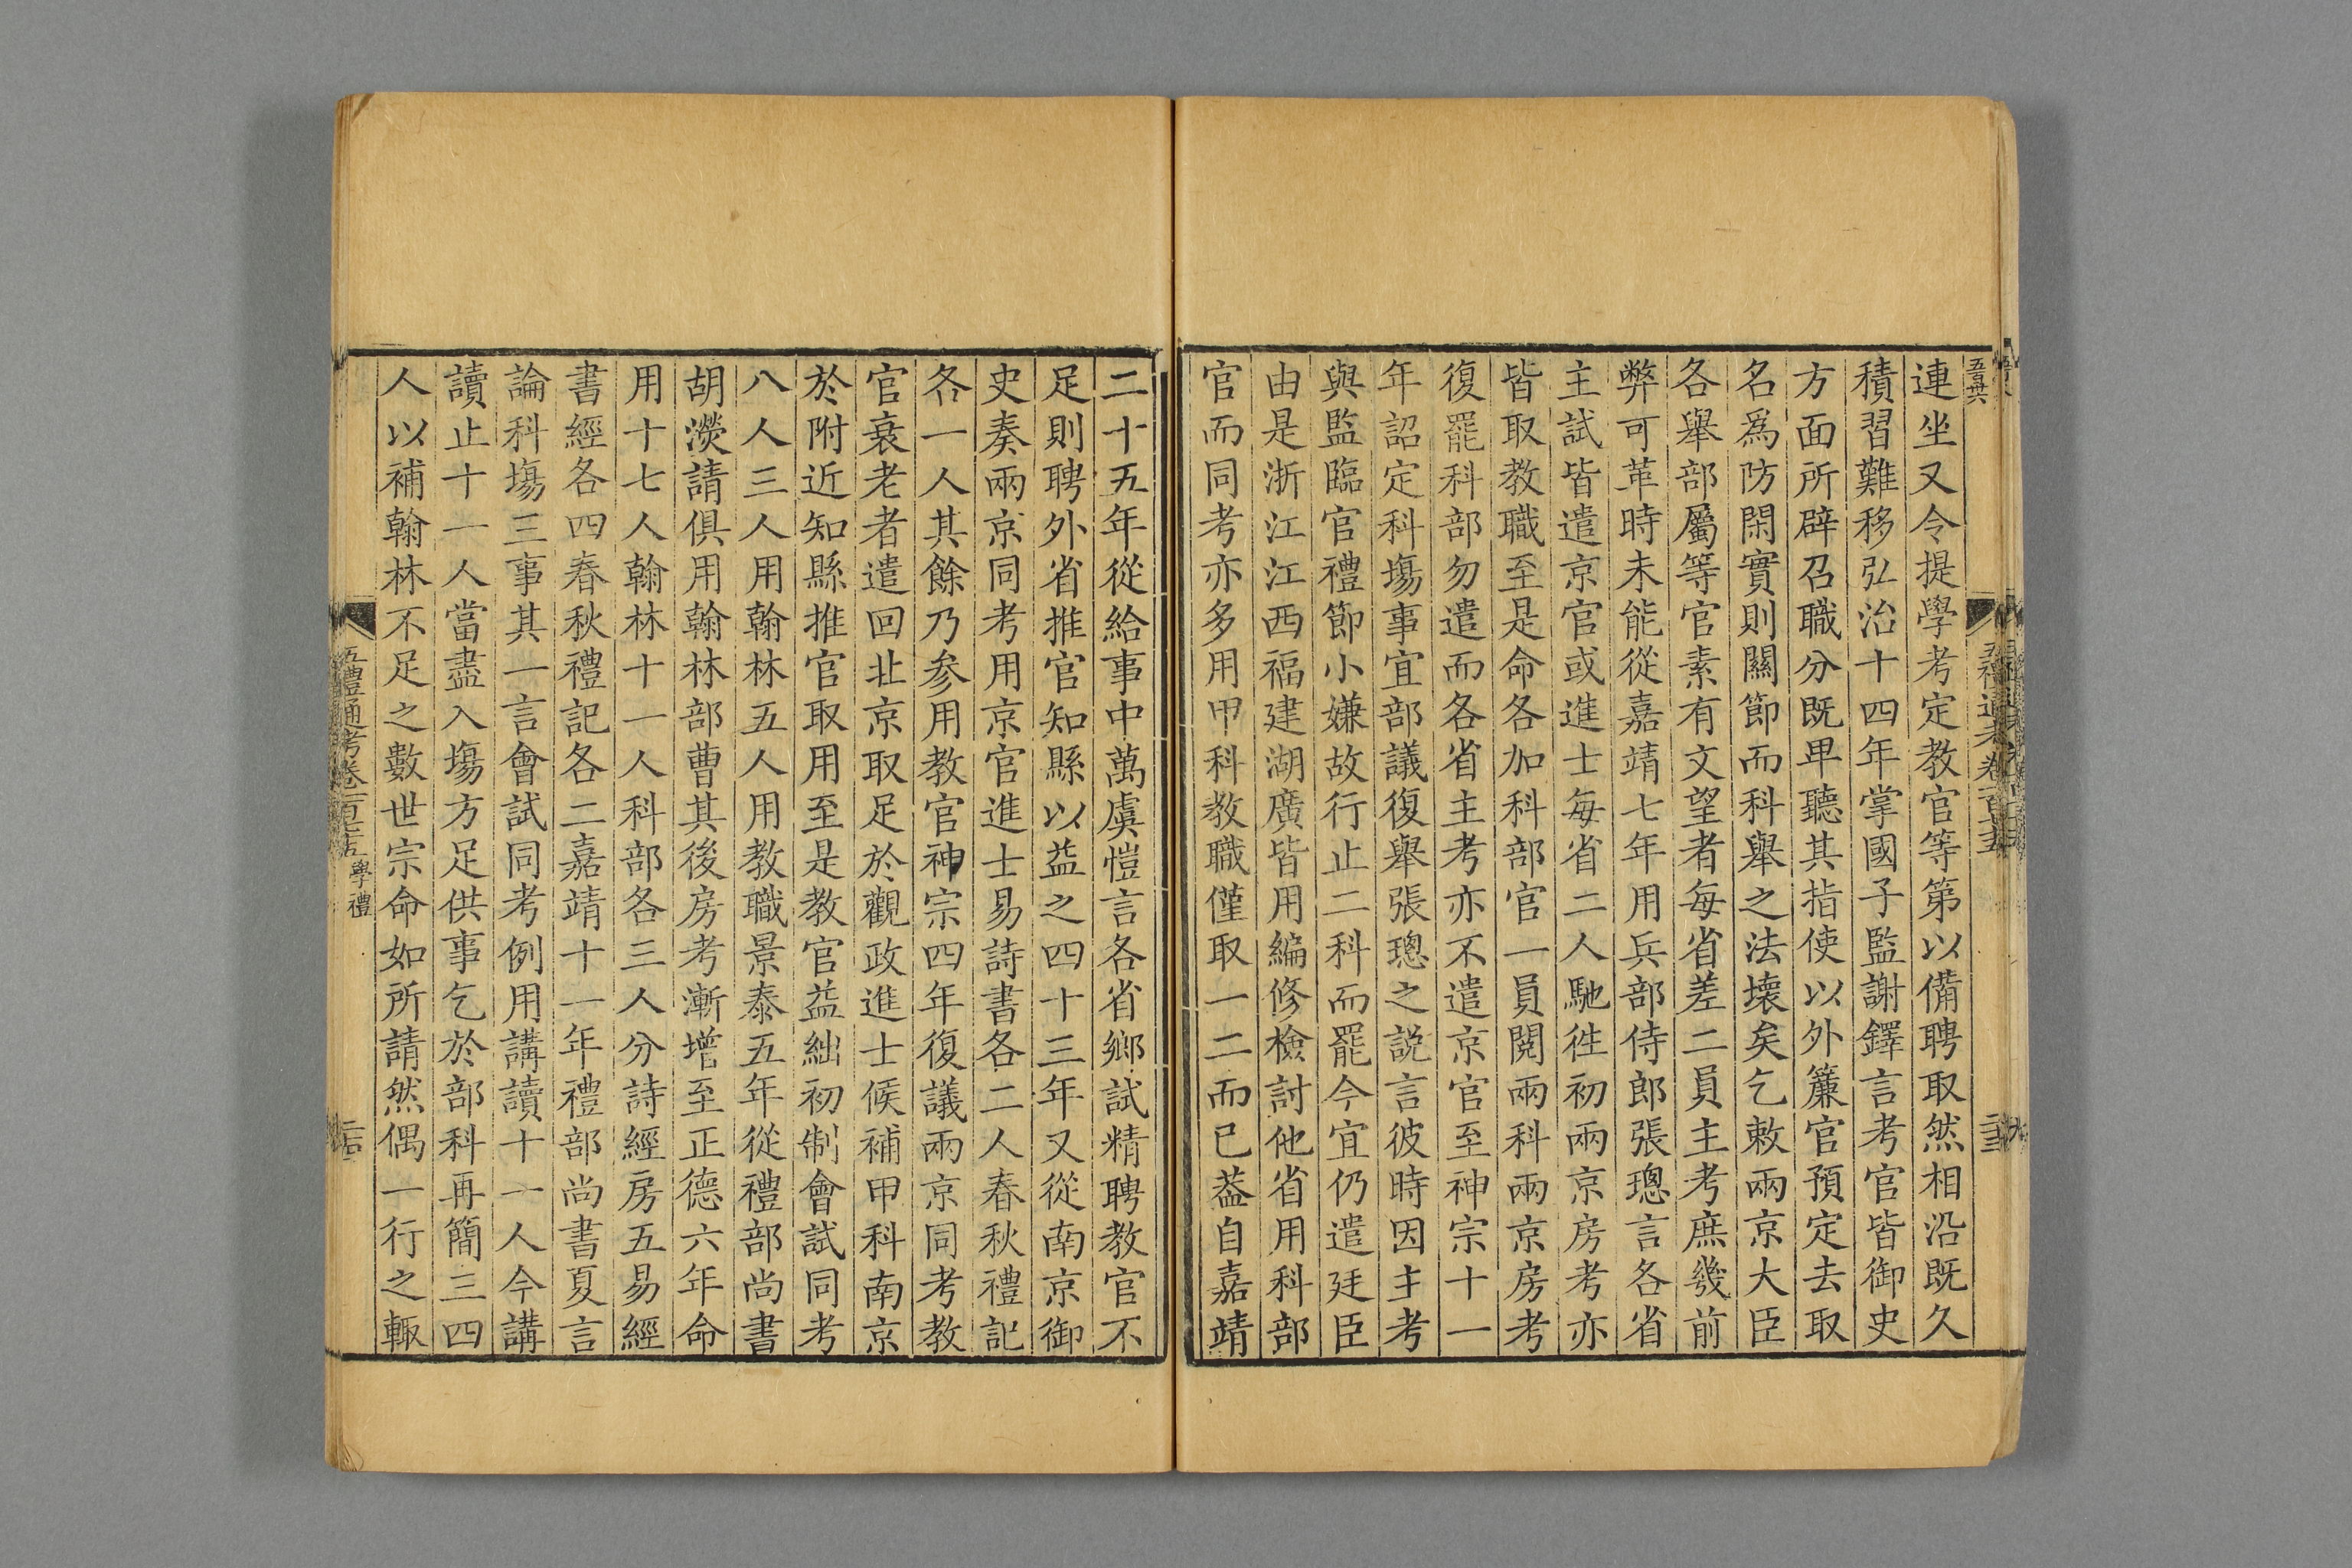 連坐又令提學考定教官等第以備聘取然相沿既久
積習難移弘治十四年掌國子監謝鐸言考官皆御史
方面所辟召職分既卑聽其指使以外簾官預定去取
名爲防閑實則關節而科舉之法壊矣乞敕兩京大臣
各舉部屬等官素有文望者每省差二員主考庶幾前
弊可革時未能從嘉靖七年用兵部侍郎張璁言各省
主試皆遣京官或進士每省二人馳徃初兩京房考亦
皆取教職至是命各加科部官一員閱兩科兩京房考
復罷科部勿遣而各省主考亦不遣京官至神宗十一
年詔定科塲事宜部議復舉張璁之說言彼時因主考
與監臨官禮節小嫌故行止二科而罷今宜仍遣廷臣
由是浙江江西福建湖廣皆用編修檢討他省用科部
官而同考亦多用甲科教職僅取一二而已葢自嘉靖
二十五年從給事中萬虞愷言各省鄉試精聘教官不
足則聘外省推官知縣以益之四十三年又從南京御
史奏兩京同考用京官進士易詩書各二人春秋禮記
各一人其餘乃參用教官神宗四年復議兩京同考教
官衰老者遣回北京取足於觀政進士候補甲科南京
於附近知縣推官取用至是教官益絀初制會試同考
八人三人用翰林五人用教職景泰五年從禮部尚書
胡濙請俱用翰林部曹其後房考漸增至正德六年命
用十七人翰林十一人科部各三人分詩經房五易經
書經各四春秋禮記各二嘉靖十一年禮部尚書夏言
論科塲三事其一言會試同考例用講讀十一人今講
讀止十一人當盡入塲方足供事乞於部科再簡三四
人以補翰林不足之數世宗命如所請然偶一行之輙
五禮通考卷一百七十五 學禮